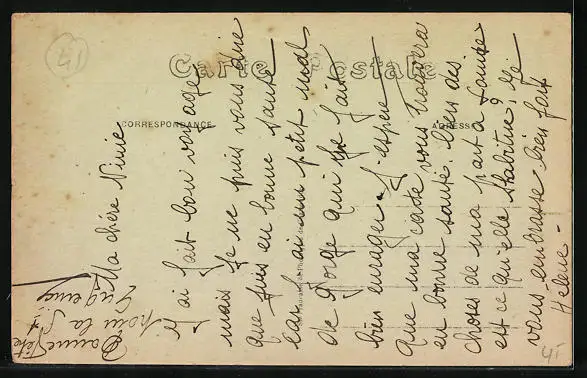 41
Carte Postale
CORRESPONDANCE
ADRESSE
Ma chère Ninie
J'ai fait bon voyage
mais je ne puis vous dire
que suis en bonne santé
car j'ai un petit mal
de gorge qui me fait
bien enrager. J'espère
que ma carte vous trouvera
en bonne santé. Bien des
choses de ma part à Louise
est ce qu'elle s'habitue? Je
vous embrasse bien fort
Hélène
Bonne fête
pour la St
41